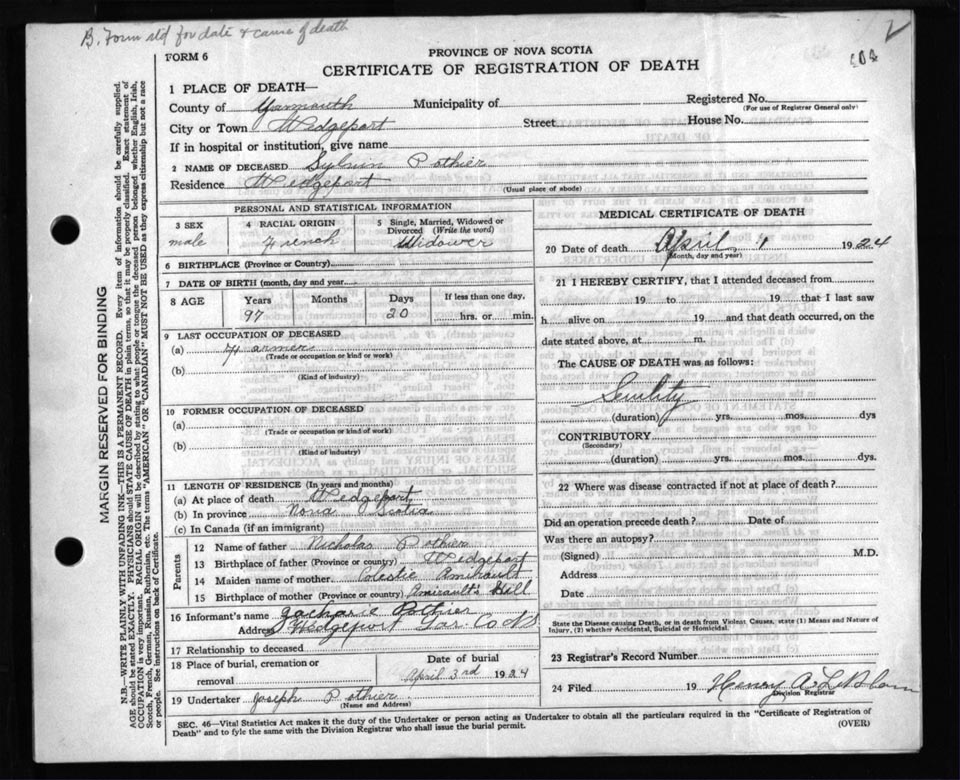 B. Form std for date & cause of death
2
FORM 6
PROVINCE OF NOVA SCOTIA
CERTIFICATE OF REGISTRATION OF DEATH
1 PLACE OF DEATH—
County of Yarmouth Municipality of Registered No.
(For use of Registrar General only)
City or Town Wedgeport Street House No.
If in hospital or institution, give name
2 NAME OF DECEASED Sylvin Pothier
Residence Wedgeport
(Usual place of abode)
PERSONAL AND STATISTICAL INFORMATION
3 SEX 4 RACIAL ORIGIN 5 Single, Married, Widowed or Divorced (Write the word)
male French Widower
6 BIRTHPLACE (Province or Country)
7 DATE OF BIRTH (month, day and year
8 AGE Years Months Days If less than one day,
97 20 hrs. or min.
9 LAST OCCUPATION OF DECEASED
(a) Farmer
(Trade or occupation or kind or work)
(b)
(Kind of industry)
10 FORMER OCCUPATION OF DECEASED
(a)
(Trade or occupation or kind of work)
(b)
(Kind of industry)
11 LENGTH OF RESIDENCE (In years and months)
(a) At place of death Wedgeport
(b) In province Nova Scotia
(c) In Canada (if an immigrant)
Parents
12 Name of father Nicholas Pothier
13 Birthplace of father (Province or country) Wedgeport
14 Maiden name of mother Celestie Amirault
15 Birthplace of mother (Province or country) Amirault's Hill
16 Informant's name Zacharie Pothier
Address Wedgeport Yar. Co NS.
17 Relationship to deceased
18 Place of burial, cremation or removal
Date of burial
April 3rd 1924
19 Undertaker Joseph Pothier
(Name and Address)
MEDICAL CERTIFICATE OF DEATH
20 Date of death April 1 1924
(Month, day and year)
21 I HEREBY CERTIFY, that I attended deceased from
19 to 19 that I last saw
h alive on 19 and that death occurred, on the
date stated above, at m.
The CAUSE OF DEATH was as follows:
Senility
(duration) yrs. mos. dys
CONTRIBUTORY
(Secondary)
(duration) yrs. mos. dys
22 Where was disease contracted if not at place of death?
Did an operation precede death? Date of
Was there an autopsy?
(Signed) M.D.
Address
Date
State the Disease causing Death, or in death from Violent Causes, state (1) Means and Nature of
Injury, (2) whether Accidental, Suicidal or Homicidal.
23 Registrar's Record Number
24 Filed 19 Henry A. LeBlanc
Division Registrar
SEC. 46—Vital Statistics Act makes it the duty of the Undertaker or person acting as Undertaker to obtain all the particulars required in the "Certificate of Registration of
Death" and to fyle the same with the Division Registrar who shall issue the burial permit. (OVER)
MARGIN RESERVED FOR BINDING
N.B.—WRITE PLAINLY WITH UNFADING INK—THIS IS A PERMANENT RECORD. Every item of information should be carefully supplied.
AGE should be stated EXACTLY. PHYSICIANS should STATE CAUSE OF DEATH in plain terms, so that it may be properly classified. Exact statement of
OCCUPATION is very important. RACIAL ORIGIN will be described by stating to what people or tongue the deceased person belonged whether English, Irish,
Scotch, French, German, Russian, Ruthenian, etc. The terms "AMERICAN" OR "CANADIAN" MUST NOT BE USED as they express citizenship but not a race
or people. See instructions on back of Certificate.